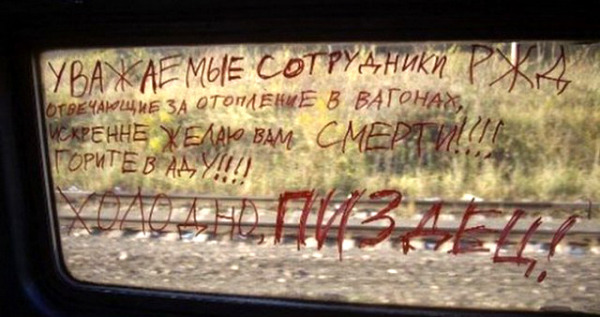 УВАЖАЕМЫЕ СОТРУДНИКИ РЖД
ОТВЕЧАЮЩИЕ ЗА ОТОПЛЕНИЕ В ВАГОНАХ,
ИСКРЕННЕ ЖЕЛАЮ ВАМ СМЕРТИ!!!!
ГОРИТЕ В АДУ!!!!
ХОЛОДНО, ПИЗДЕЦ!